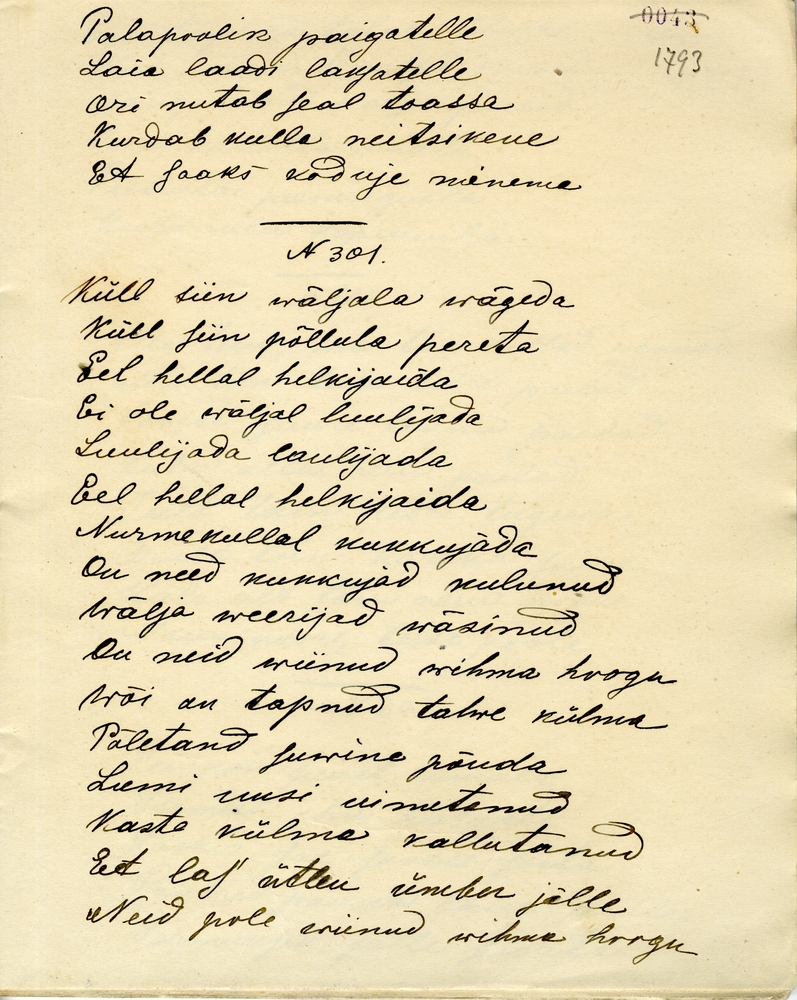 0043
1793
Palapoolik paigatelle
Laia laadi lapsatelle
Ori nutab seal toassa
Kurdab kulla neitsikene
Et saaks koduje minema
N 301.
Küll siin wäljala wägeda
Küll siin põllula pereta
Eel hellal helkijaida
Ei ole wäljal luulijada
Luulijada laulijada
Eel hellal helkijaida
Nurmekullal kukkujada
On need kukkujad kulunud
Wälja weerijad wäsinud
On neid wiinud wihma hoogu
Wõi on tapnud talwe külma
Põletand suwine põuda
Lumi uusi uimetanud
Kaste külma kallutanud
Eet las' ütlen ümber jälle
Neid pole wiinud wihma hoogu